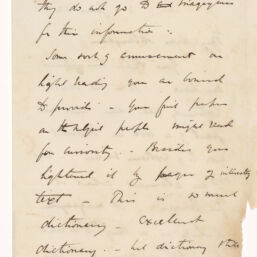 they do not go to magazines
for this information:
Some sort of amusement or
light reading you are bound
to provide – Your first paper
on the subject people might read
for curiosity – Besides you
lightened it by pages of
text – This is so much
dictionary – excellent
dictionary – but dictionary